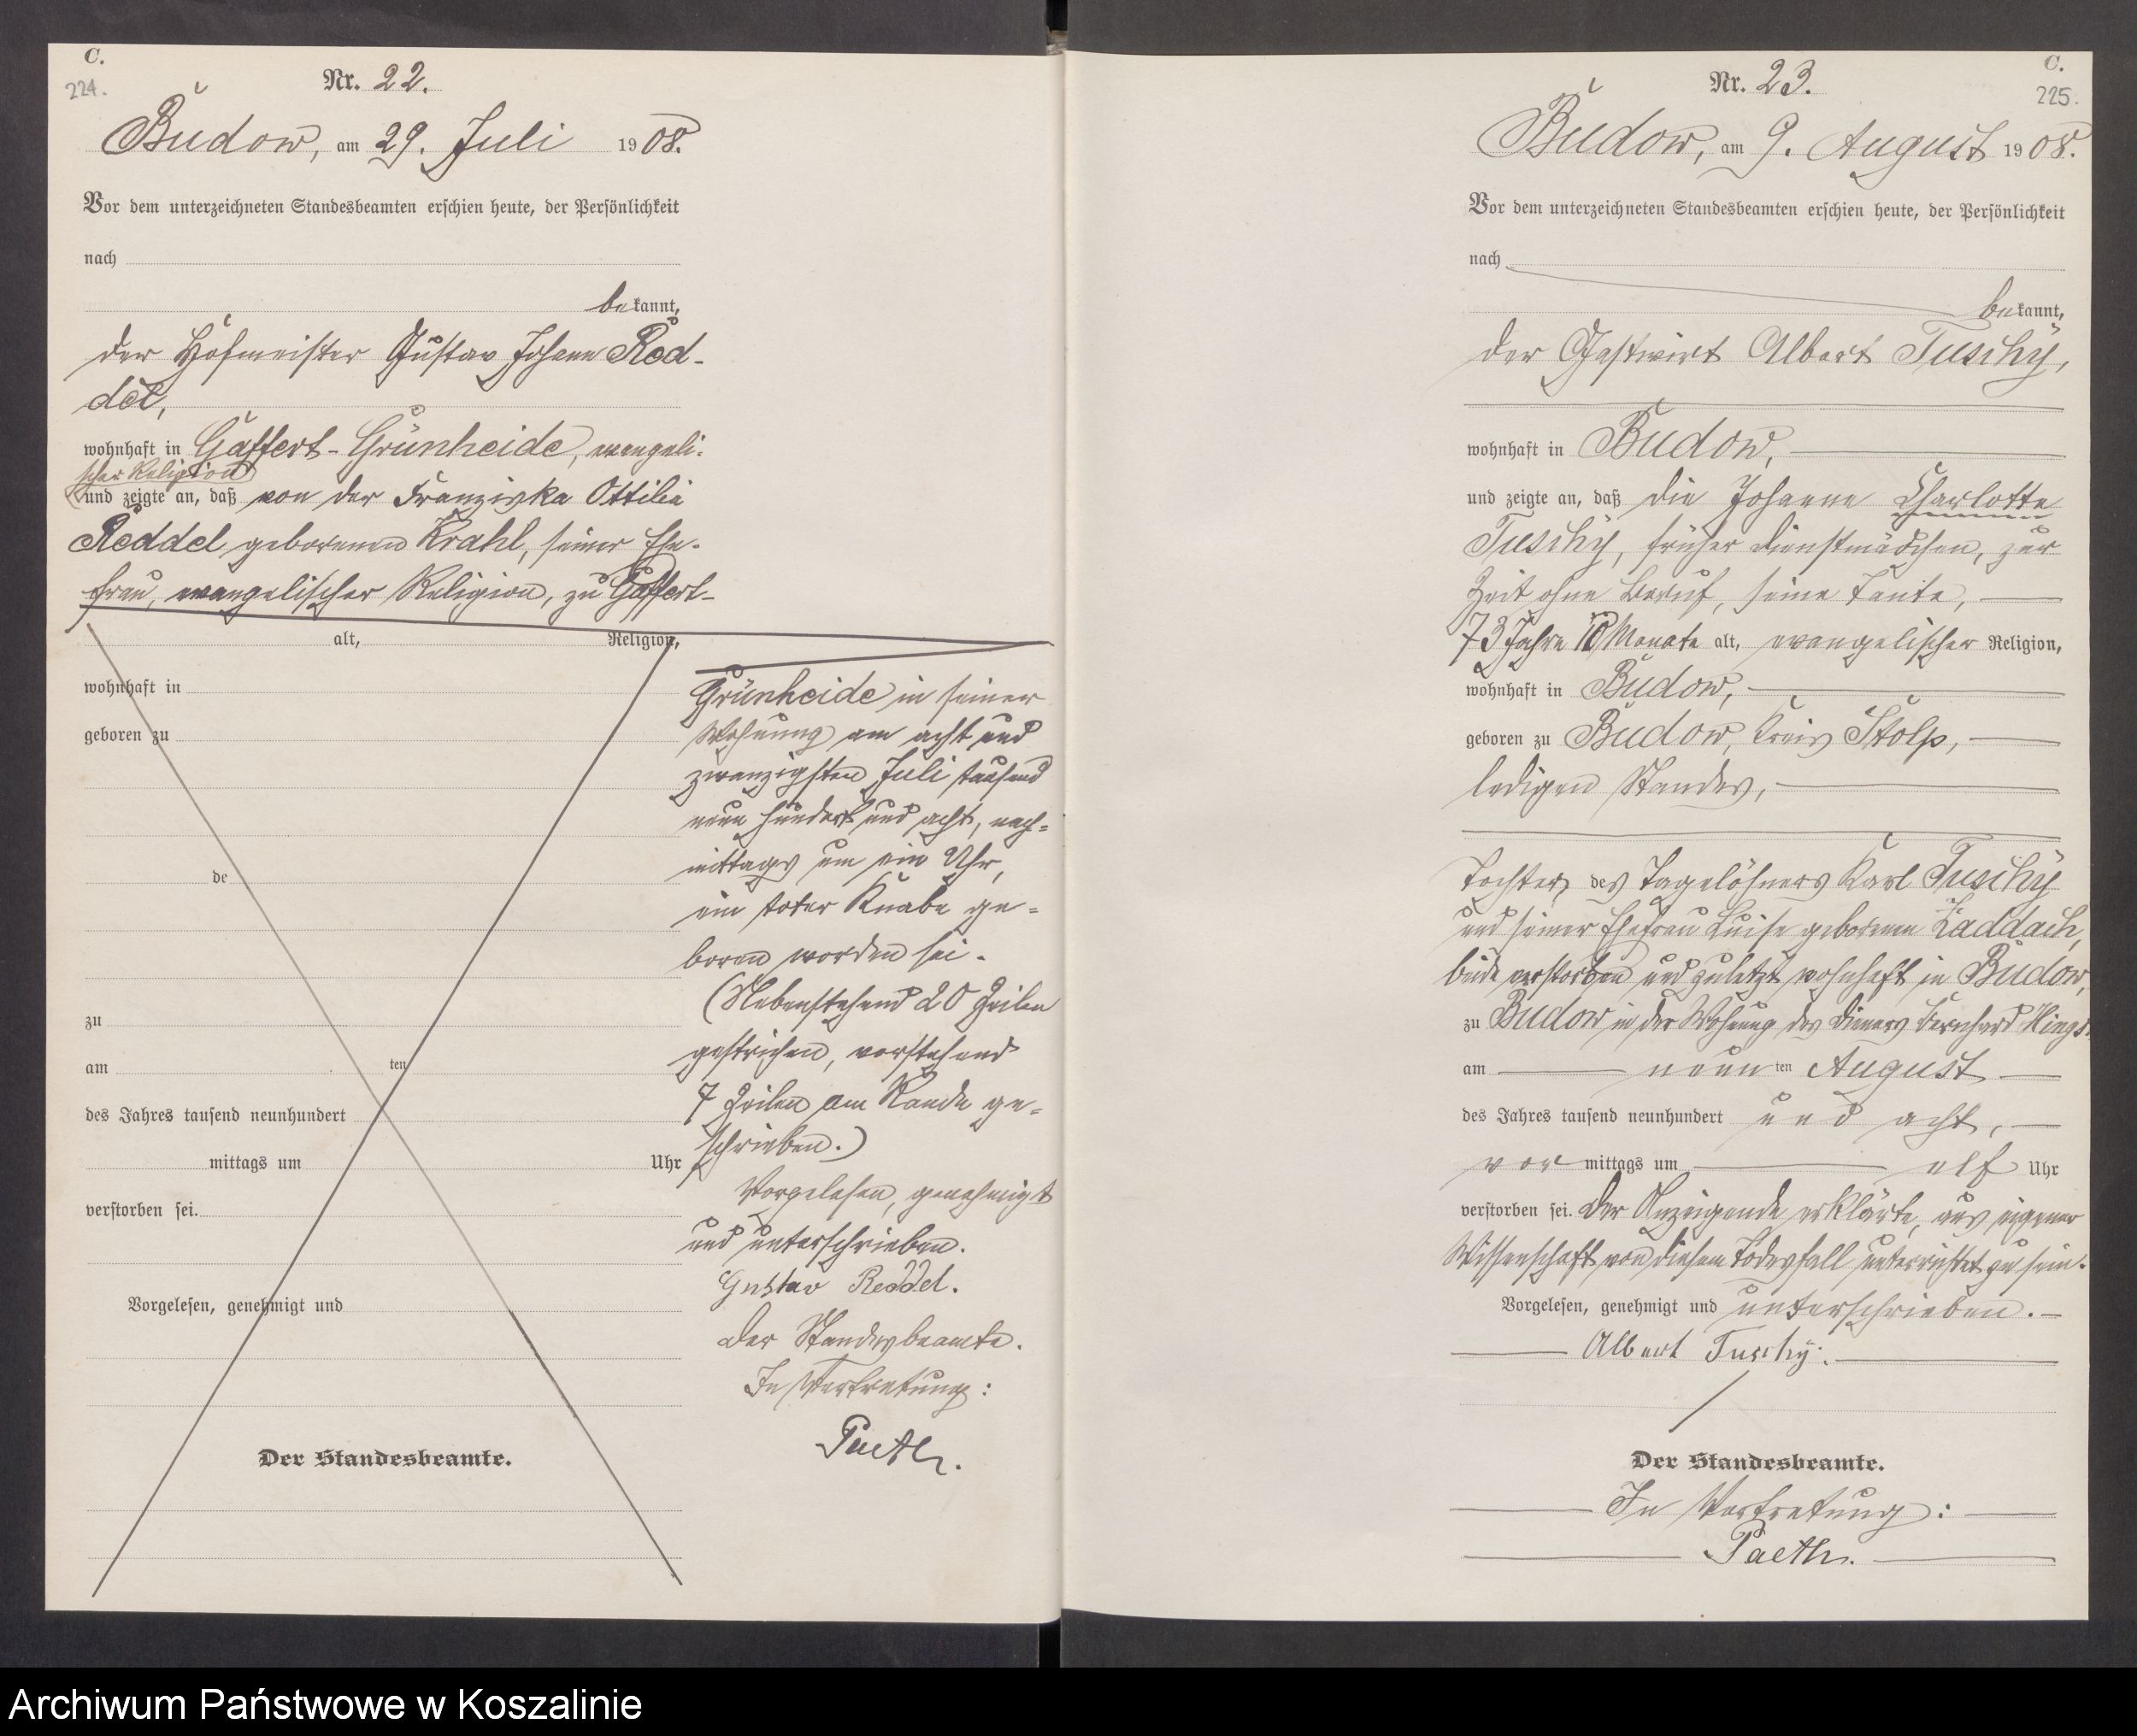 C.
224.
Nr. 22.
Budow, am 29. Juli 1908.
Vor dem unterzeichneten Standesbeamten erschien heute, der Persönlichkeit
nach
bekannt,
der Hofmeister Gustav Johann Red-
del,
wohnhaft in Gaffert-Grünheide, evangeli-
scher Religion
und zeigte an, daß von der Franziska Ottilie
Reddel geborenen Krahl, seiner Ehe-
frau, evangelischer Religion, zu Gaffert-
alt, Religion,
wohnhaft in
geboren zu
de
zu
am ten
des Jahres tausend neunhundert
mittags um Uhr
verstorben sei.
Vorgelesen, genehmigt und
Der Standesbeamte.
Grünheide in seiner
Wohnung am acht und
zwanzigsten Juli tausend
neun hundert und acht, nach-
mittags um ein Uhr,
ein toter Knabe ge-
boren worden sei.
(Nebenstehend 20 Zeilen
gestrichen, vorstehend
7 Zeilen am Rande ge-
schrieben.)
Vorgelesen, genehmigt
und unterschrieben.
Gustav Reddel.
Der Standesbeamte.
In Vertretung:
Paeth.
C.
225.
Nr. 23.
Budow, am 9. August 1908.
Vor dem unterzeichneten Standesbeamten erschien heute, der Persönlichkeit
nach
bekannt,
der Gastwirt Albert Tuschy,
wohnhaft in Budow,
und zeigte an, daß die Johanne Charlotte
Tuschy, früher Dienstmädchen, zur
Zeit ohne Beruf, seine Tante,
73 Jahre 10 Monate alt, evangelischer Religion,
wohnhaft in Budow,
geboren zu Budow, Kreis Stolp,
ledigen Standes,
Tochter des Tagelöhners Karl Tuschy
und seiner Ehefrau Luise geborenen Zaddach,
beide verstorben und zuletzt wohnhaft in Budow,
zu Budow in der Wohnung des Dieners Bernhard
am neunten August
des Jahres tausend neunhundert und acht,
vor mittags um elf Uhr
verstorben sei. Der Anzeigende erklärte, aus eigener
Wissenschaft von diesem Todesfall unterrichtet zu sein.
Vorgelesen, genehmigt und unterschrieben.
Albert Tuschy.
Der Standesbeamte.
In Vertretung:
Paeth.
Archiwum Państwowe w Koszalinie